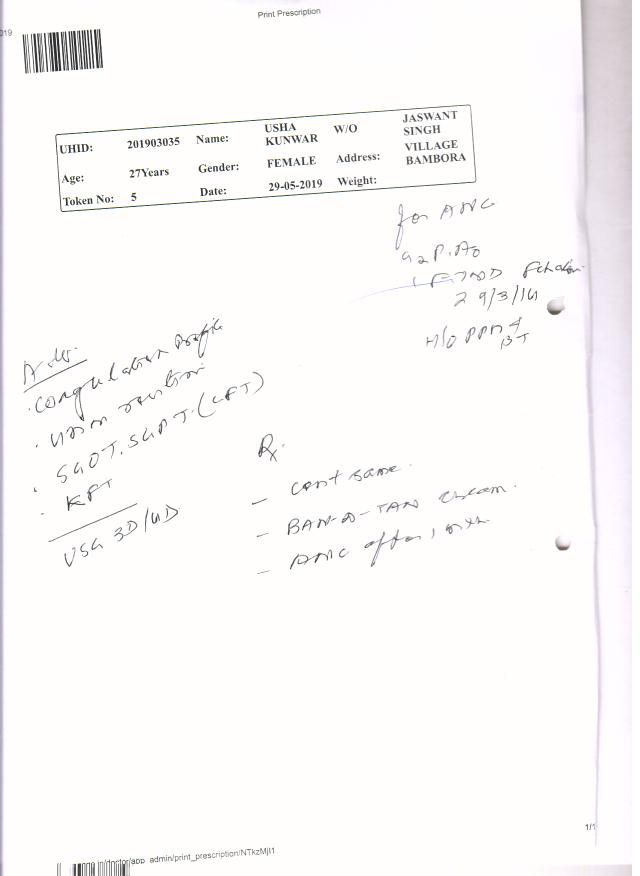 Print Prescription
019
UHID: 201903035 Name: USHA KUNWAR W/O JASWANT SINGH
Age: 27Years Gender: FEMALE Address: VILLAGE BAMBORA
Token No: 5 Date: 29-05-2019 Weight:
for ANC
G2P1A0
29/3/14
H/O PPH &
BT
Adv.
Coagulation Profile
Urine routine
SGOT. SGPT. (LFT)
KFT
USG 3D/4D
Rx.
- Cont same.
- BAN-A-TAN cream.
- ANC after 1 mth
1/1
in/doctor/app_admin/print_prescription/NTkzMjI1